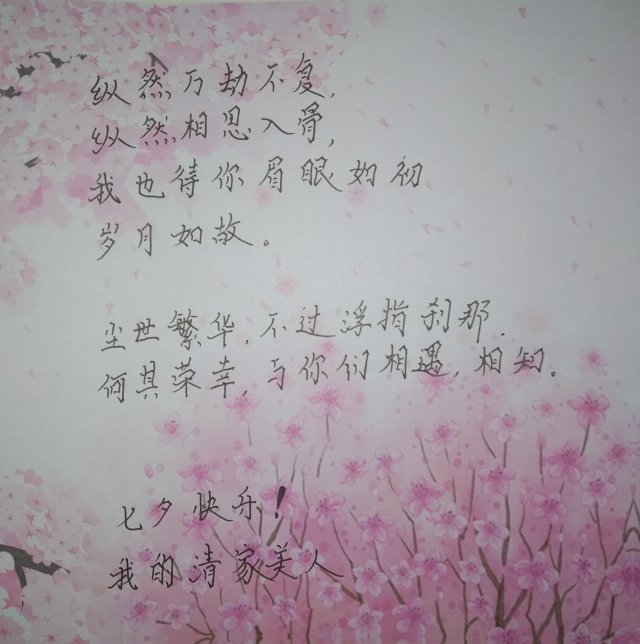 纵然万劫不复,
纵然相思入骨,
我也待你眉眼如初
岁月如故。
尘世繁华,不过浮指刹那.
何其荣幸,与你们相遇,相知。
七夕快乐!
我的清家美人